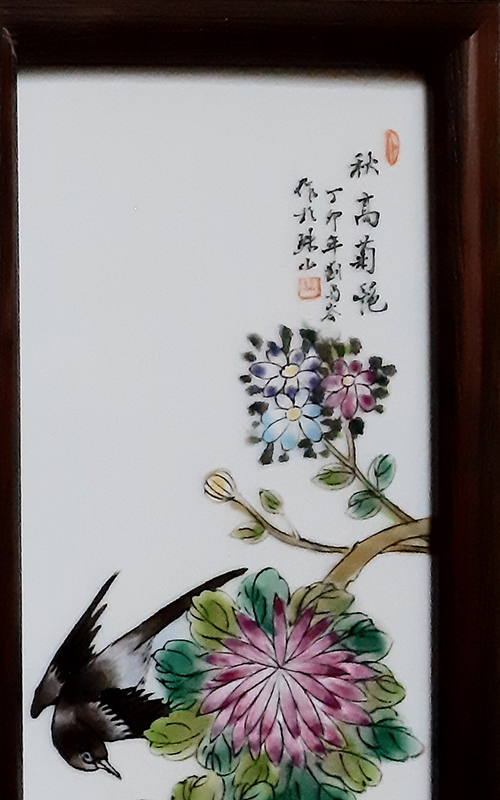 秋高菊艳
丁卯年刘雨岑
作於珠山